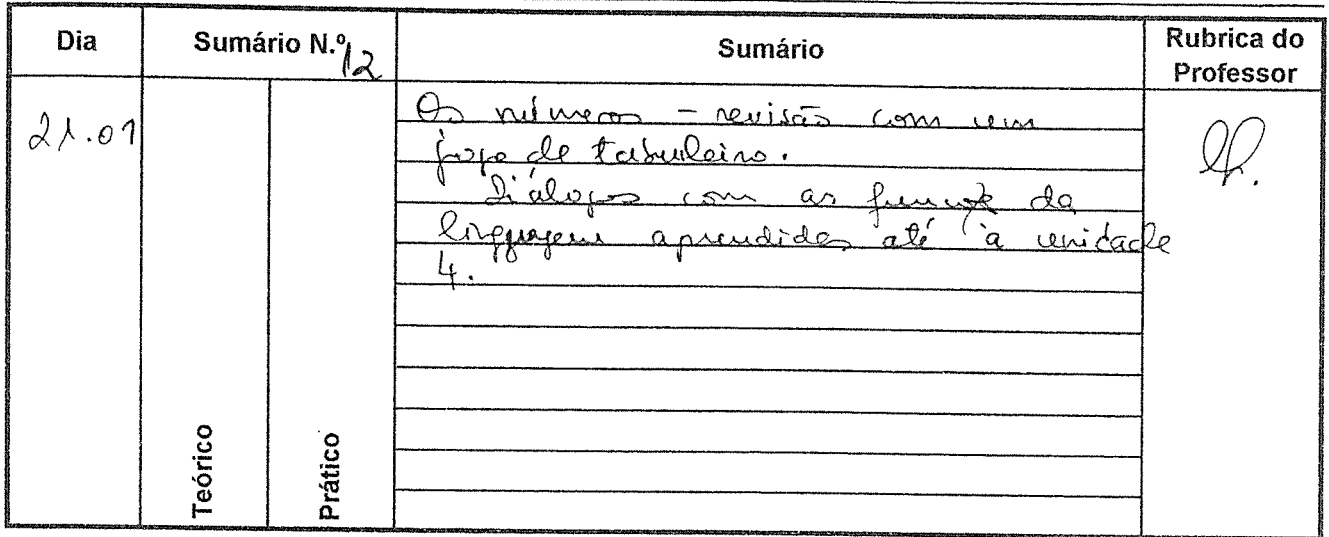 Dia Sumário N.º 12 Sumário Rubrica do Professor
21.01
Os números - revisão com um
jogo de tabuleiro.
Diálogos com as funções da
linguagem aprendidas até à unidade
4.
Teórico Prático